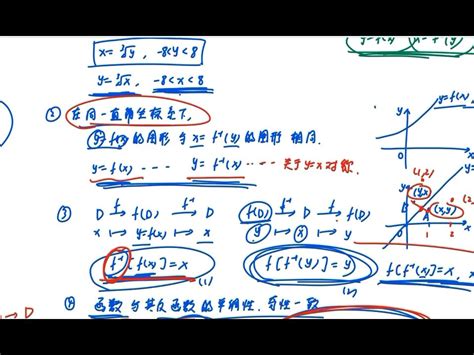 x=∛y, -8<y<8
y=∛x, -8<x<8
② 在同一直角坐标系下,
y=f(x) 的图形 与 x=f⁻¹(y) 的图形 相同.
y=f(x) ---- y=f⁻¹(x) ---- 关于y=x对称.
③ D →f f(D) →f⁻¹ D
x ↦ y=f(x) ↦ x
f⁻¹[f(x)]=x (1)
f(D) →f⁻¹ D →f f(D)
y ↦ x ↦ y
f[f⁻¹(y)]=y (2)
f[f⁻¹(x)]=x,
④ 函数与其反函数的单调性,奇性一致
y
y=f(x)
O
x
(1,2)
(y,x)
(x,y)
A
O
1
2
x
→ D